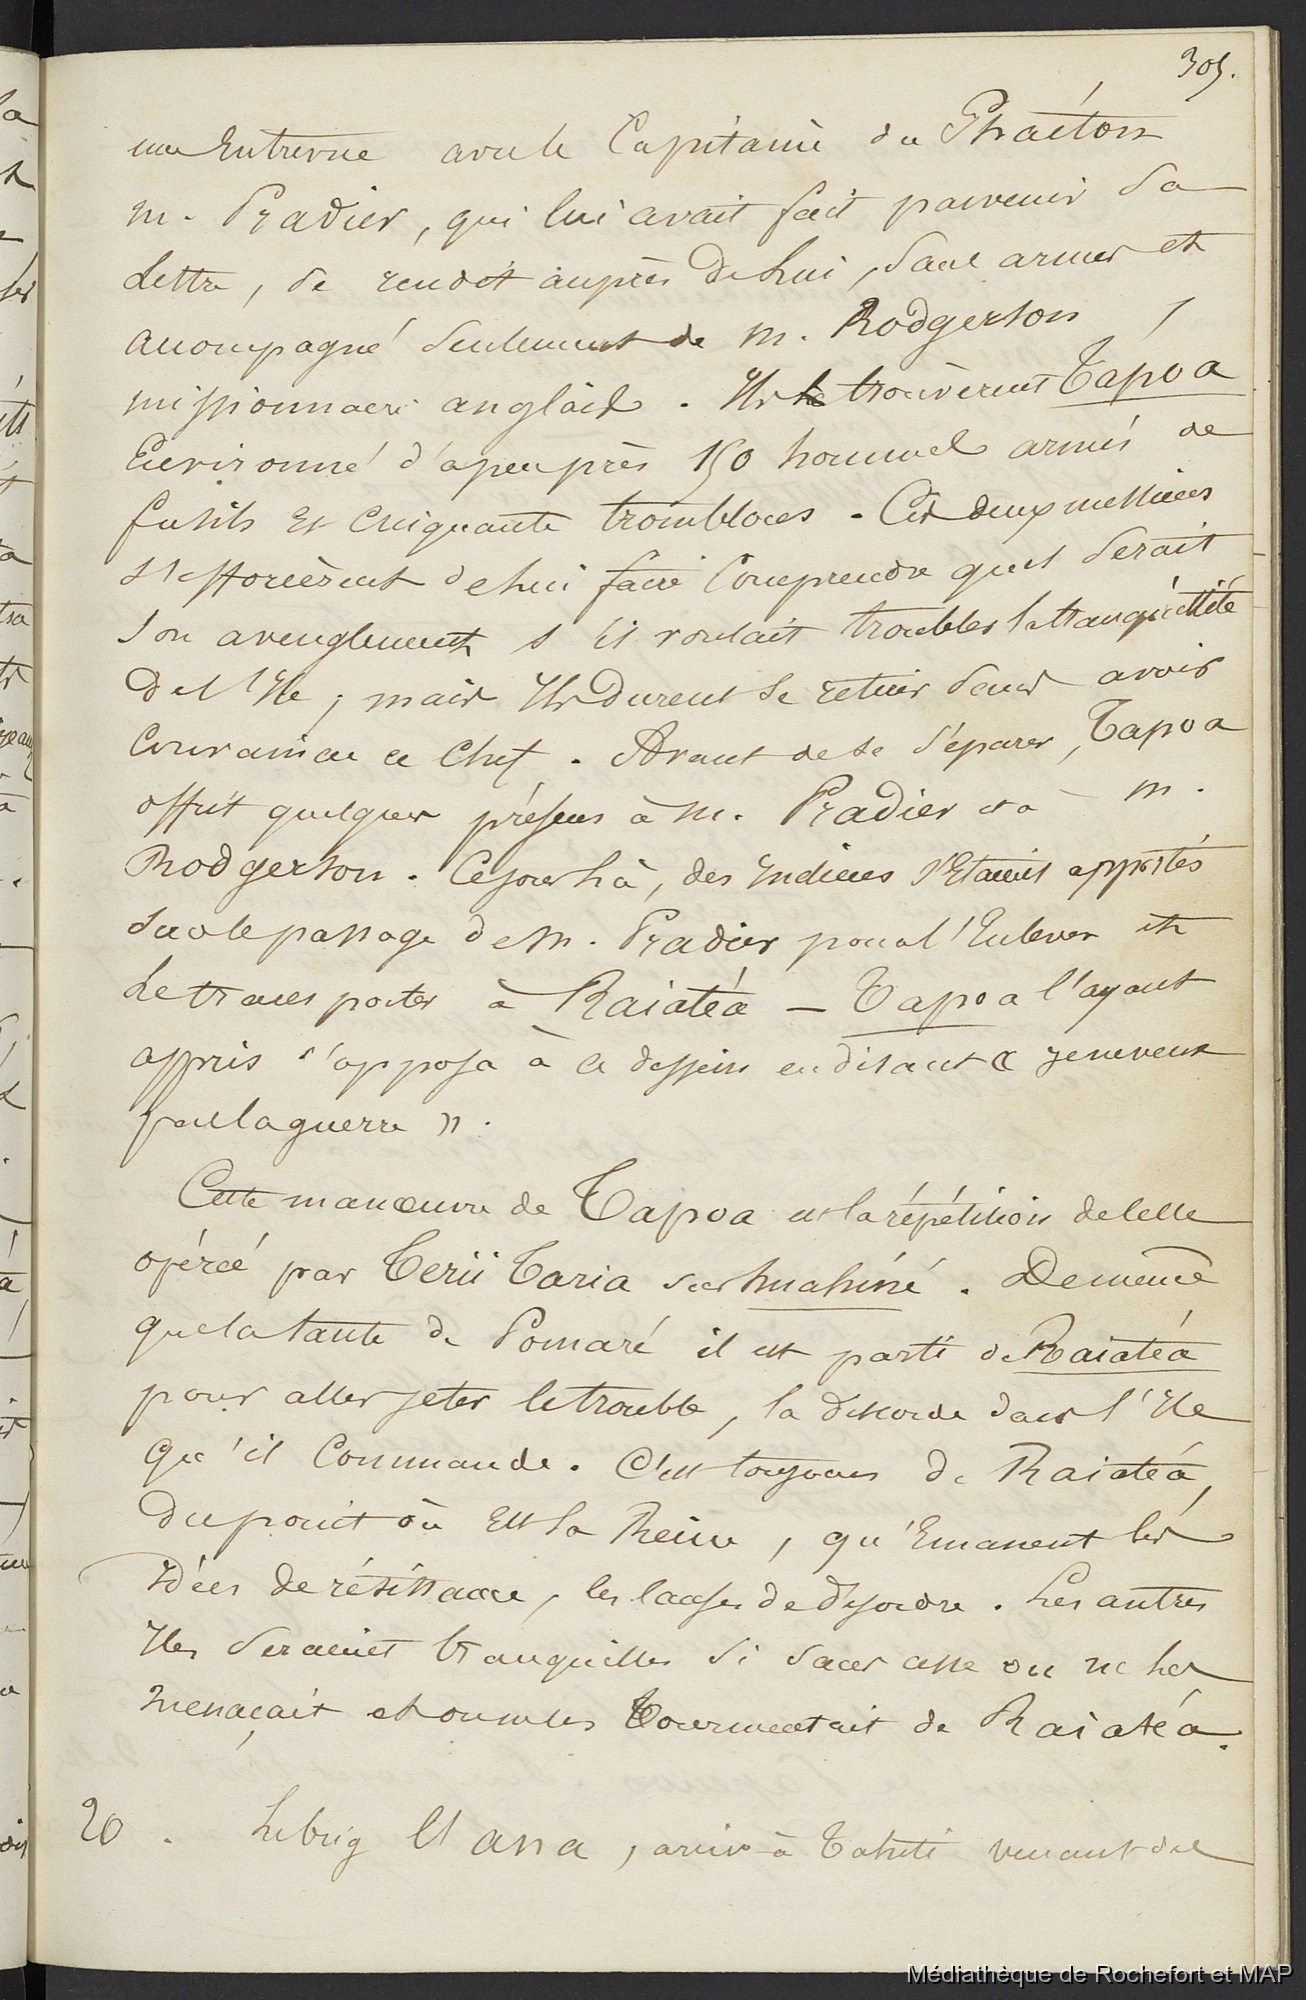 305.
une Entrevue avec le Capitaine du Phaéton
M. Pradier, qui lui avait fait parvenir sa
Lettre, se rendit auprès de lui, sans armes et
accompagné seulement de M. Rodgerson,
missionnaire anglais. Ils trouvèrent Tapoa
Environné d'apeuprès 150 hommes armés de
fusils et cinquante tromblons. Ces deux messieurs
s'efforcèrent de lui faire Comprendre quel serait
son aveuglement s'il voulait troubler la tranquillité
de l'Ile; mais Ils durent se retirer sans avoir
convaincu ce Chef. Avant de se séparer, Tapoa
offrit quelques présens à M. Pradier et à M.
Rodgerson. Ce jour là, des Indiens s'Etaient appostés
sur le passage de M. Pradier pour l'Enlever et
Le transporter à Raiatéa – Tapoa l'ayant
appris s'opposa à ce dessein en disant « je ne veux
pas la guerre ».
Cette manœuvre de Tapoa est la répétition de celle
opérée par Terii Taria sur Huahiné. De même
que la tante de Pomaré il est parti de Raiatéa
pour aller jeter le trouble, la discorde dans l'Ile
qu'il Commande. C'est toujours de Raiatéa,
du point où Est la Reine, qu'Emanent les
Idées de résistance, les causes de désordre. Les autres
Iles seraient tranquilles si sans cesse on ne les
menaçait et on ne les Tourmentait de Raiatéa.
20. Le brig Ana, arrive à Tahiti venant des
Médiathèque de Rochefort et MAP